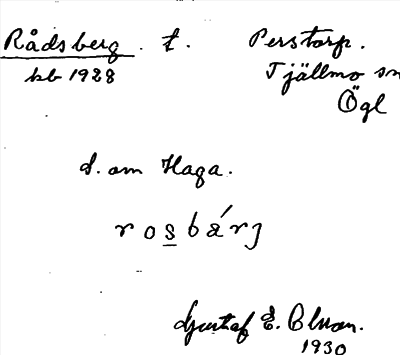 Rådsberg. t. Perstorp.
kb 1928 Tjällmo sn
Ögl
d. om Haga.
rosbárj
Gustaf E. Olson.
1930